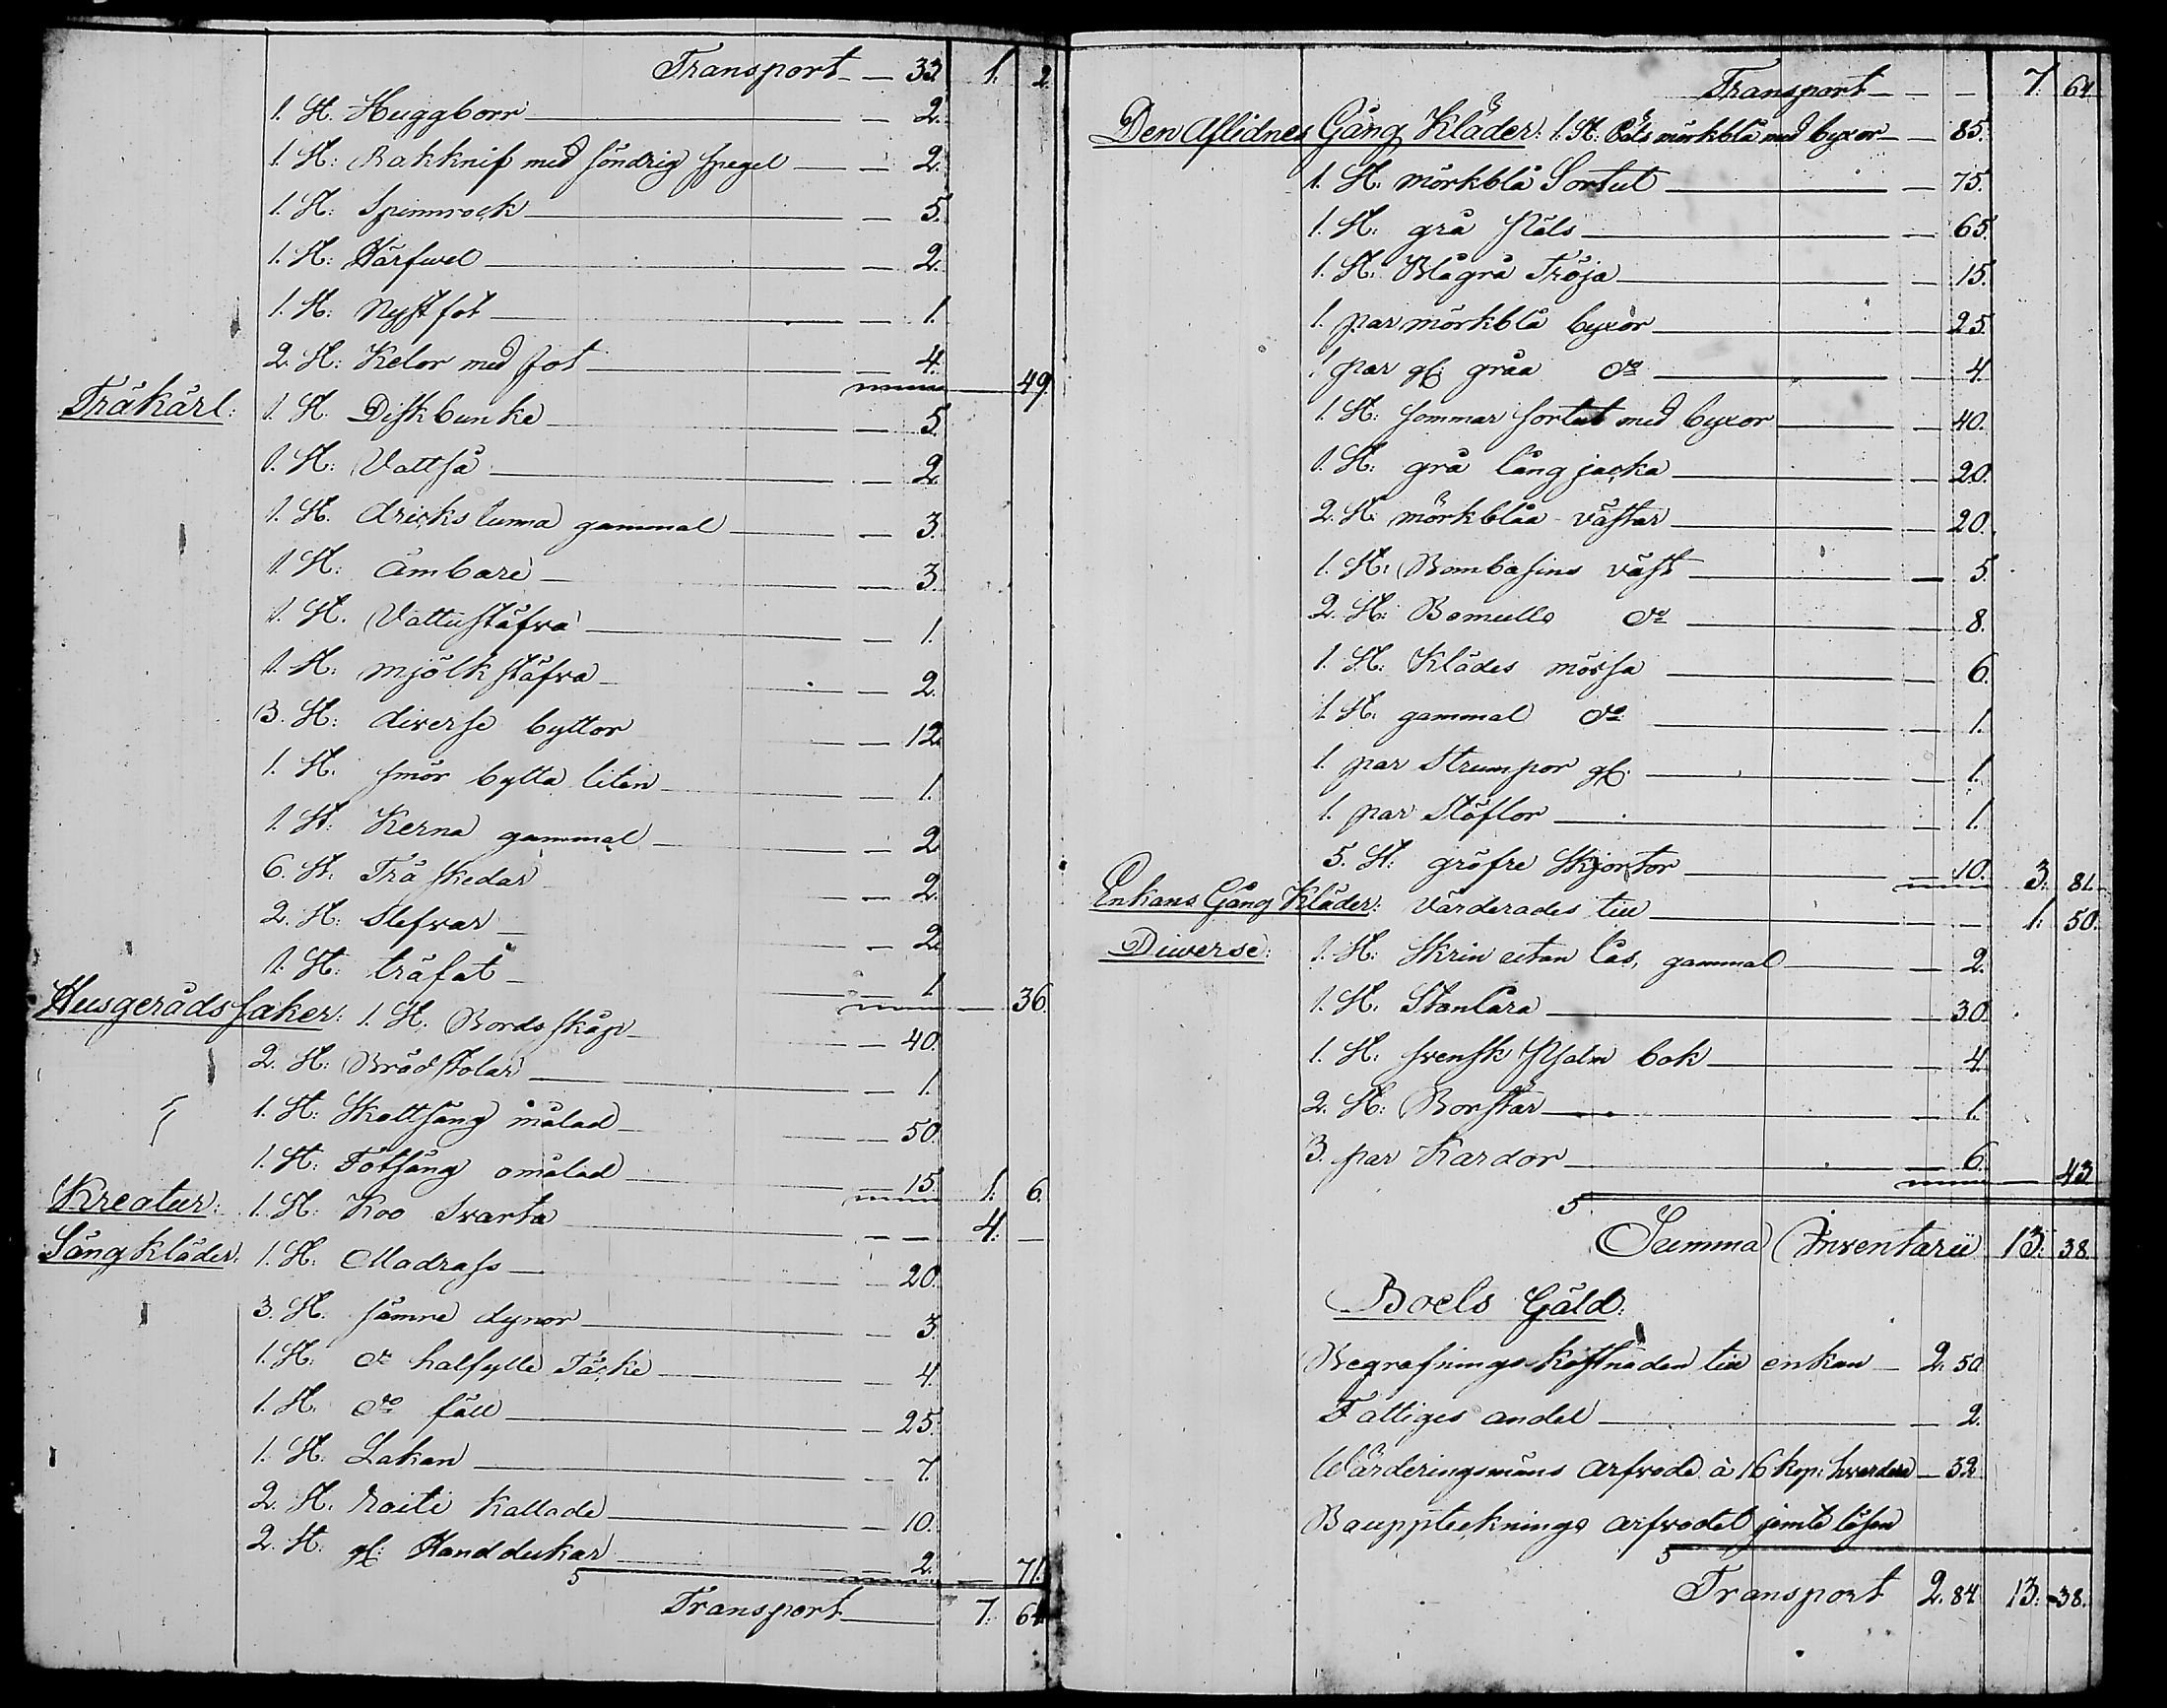 Transport — 33 1. 2
1. St. Huggborr — 2.
1. St: Rakknif med söndrig spegel — 2.
1. St: Spinnrock — 5.
1. St: Härfwel — 2.
1. St: Nystfot — 1.
2. St: Kelor med fot — 4. — 49.
Träkärl: 1. St. Diskbunke — 5.
1. St: Vattså — 2.
1. St. drickstunna gammal — 3.
1. St: ämbare — 3.
1. St. Vattustäfva — 1.
1. St: mjölkstäfva — 2.
3. St: diverse byttor — 12.
1. St. smör bytta liten — 1.
1. St: Kerna gammal — 2
6. St: Träskedar — 2.
2. St: Slefvar — 2.
1. St: träfat — 1 — 36.
Husgerådssaker: 1. St. Bordsskåp — 40.
2. St: Brädstolar — 1.
1. St: Skottsäng målad — 50.
1. St: Fötsäng omålad — 15. 1. 6.
Kreatur: 1. St: Koo Svarta — — 4. —
Sängkläder: 1. St: Madrass — 20.
3. St. sämre dynor — 3.
1. St: do halfylle Täcke — 4.
1. St. do fäll — 25.
1. St. Lakan — 7.
2. St. raiti kallade — 10.
2. St: gl: Handdukar — 2. — 71.
Transport — 7. 64
Transport — — 7. 64.
Den Aflidnes Gång Kläder: 1. St: Päls mörkblå med byxor — 85.
1. St. mörkblå Sortut — 75.
1. St: grå Päls — 65.
1. St: Blågrå Tröja — 15.
1. par mörkblå byxor — 25.
1 par gl: gråa do — 4.
1. St: sommar sortut med byxor — 40.
1. St: grå lång jacka — 20.
2. St: mörkblåa västar — 20.
1. St: Bombasins väst — 5.
2. St: Bomulls do — 8.
1. St: Klädes mössa — 6.
1. St: gammal do — 1.
1. par Strumpor gl: — 1.
1. par Stöflor — 1.
5. St: gröfre Skjortor — 10. 3: 81.
Enkans Gång Kläder: värderades till — — 1: 50.
Diwerse: 1. St: Skrin utan lås, gammal — 2.
1. St. — 30.
1. St: svensk Psalm bok — 4.
2. St: Borstar — 1.
3. par Kardor — 6. — 43
Summa Inventarii 13: 38.
Boets Gäld:
Begrafnings kostnaden till enkan — 2. 50
Fattiges andel — 2.
Wärderingsmäns arfvode à 16 kop: hvardera — 32
Bouppteknings arfvodet jemte lösen
Transport 2. 84 13. 38.